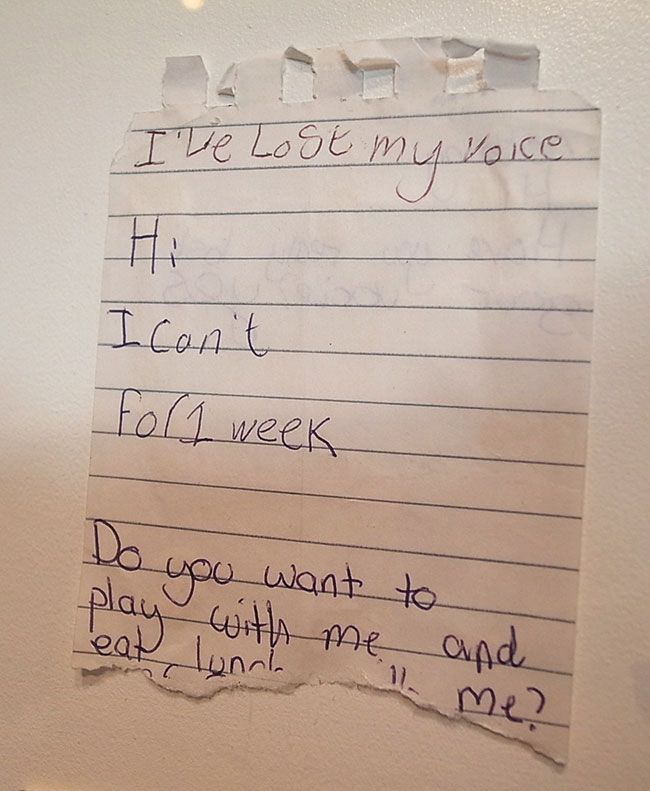 I've Lost my voice
Hi
I can't
For 1 week
Do you want to
play with me and
eat lunch me?